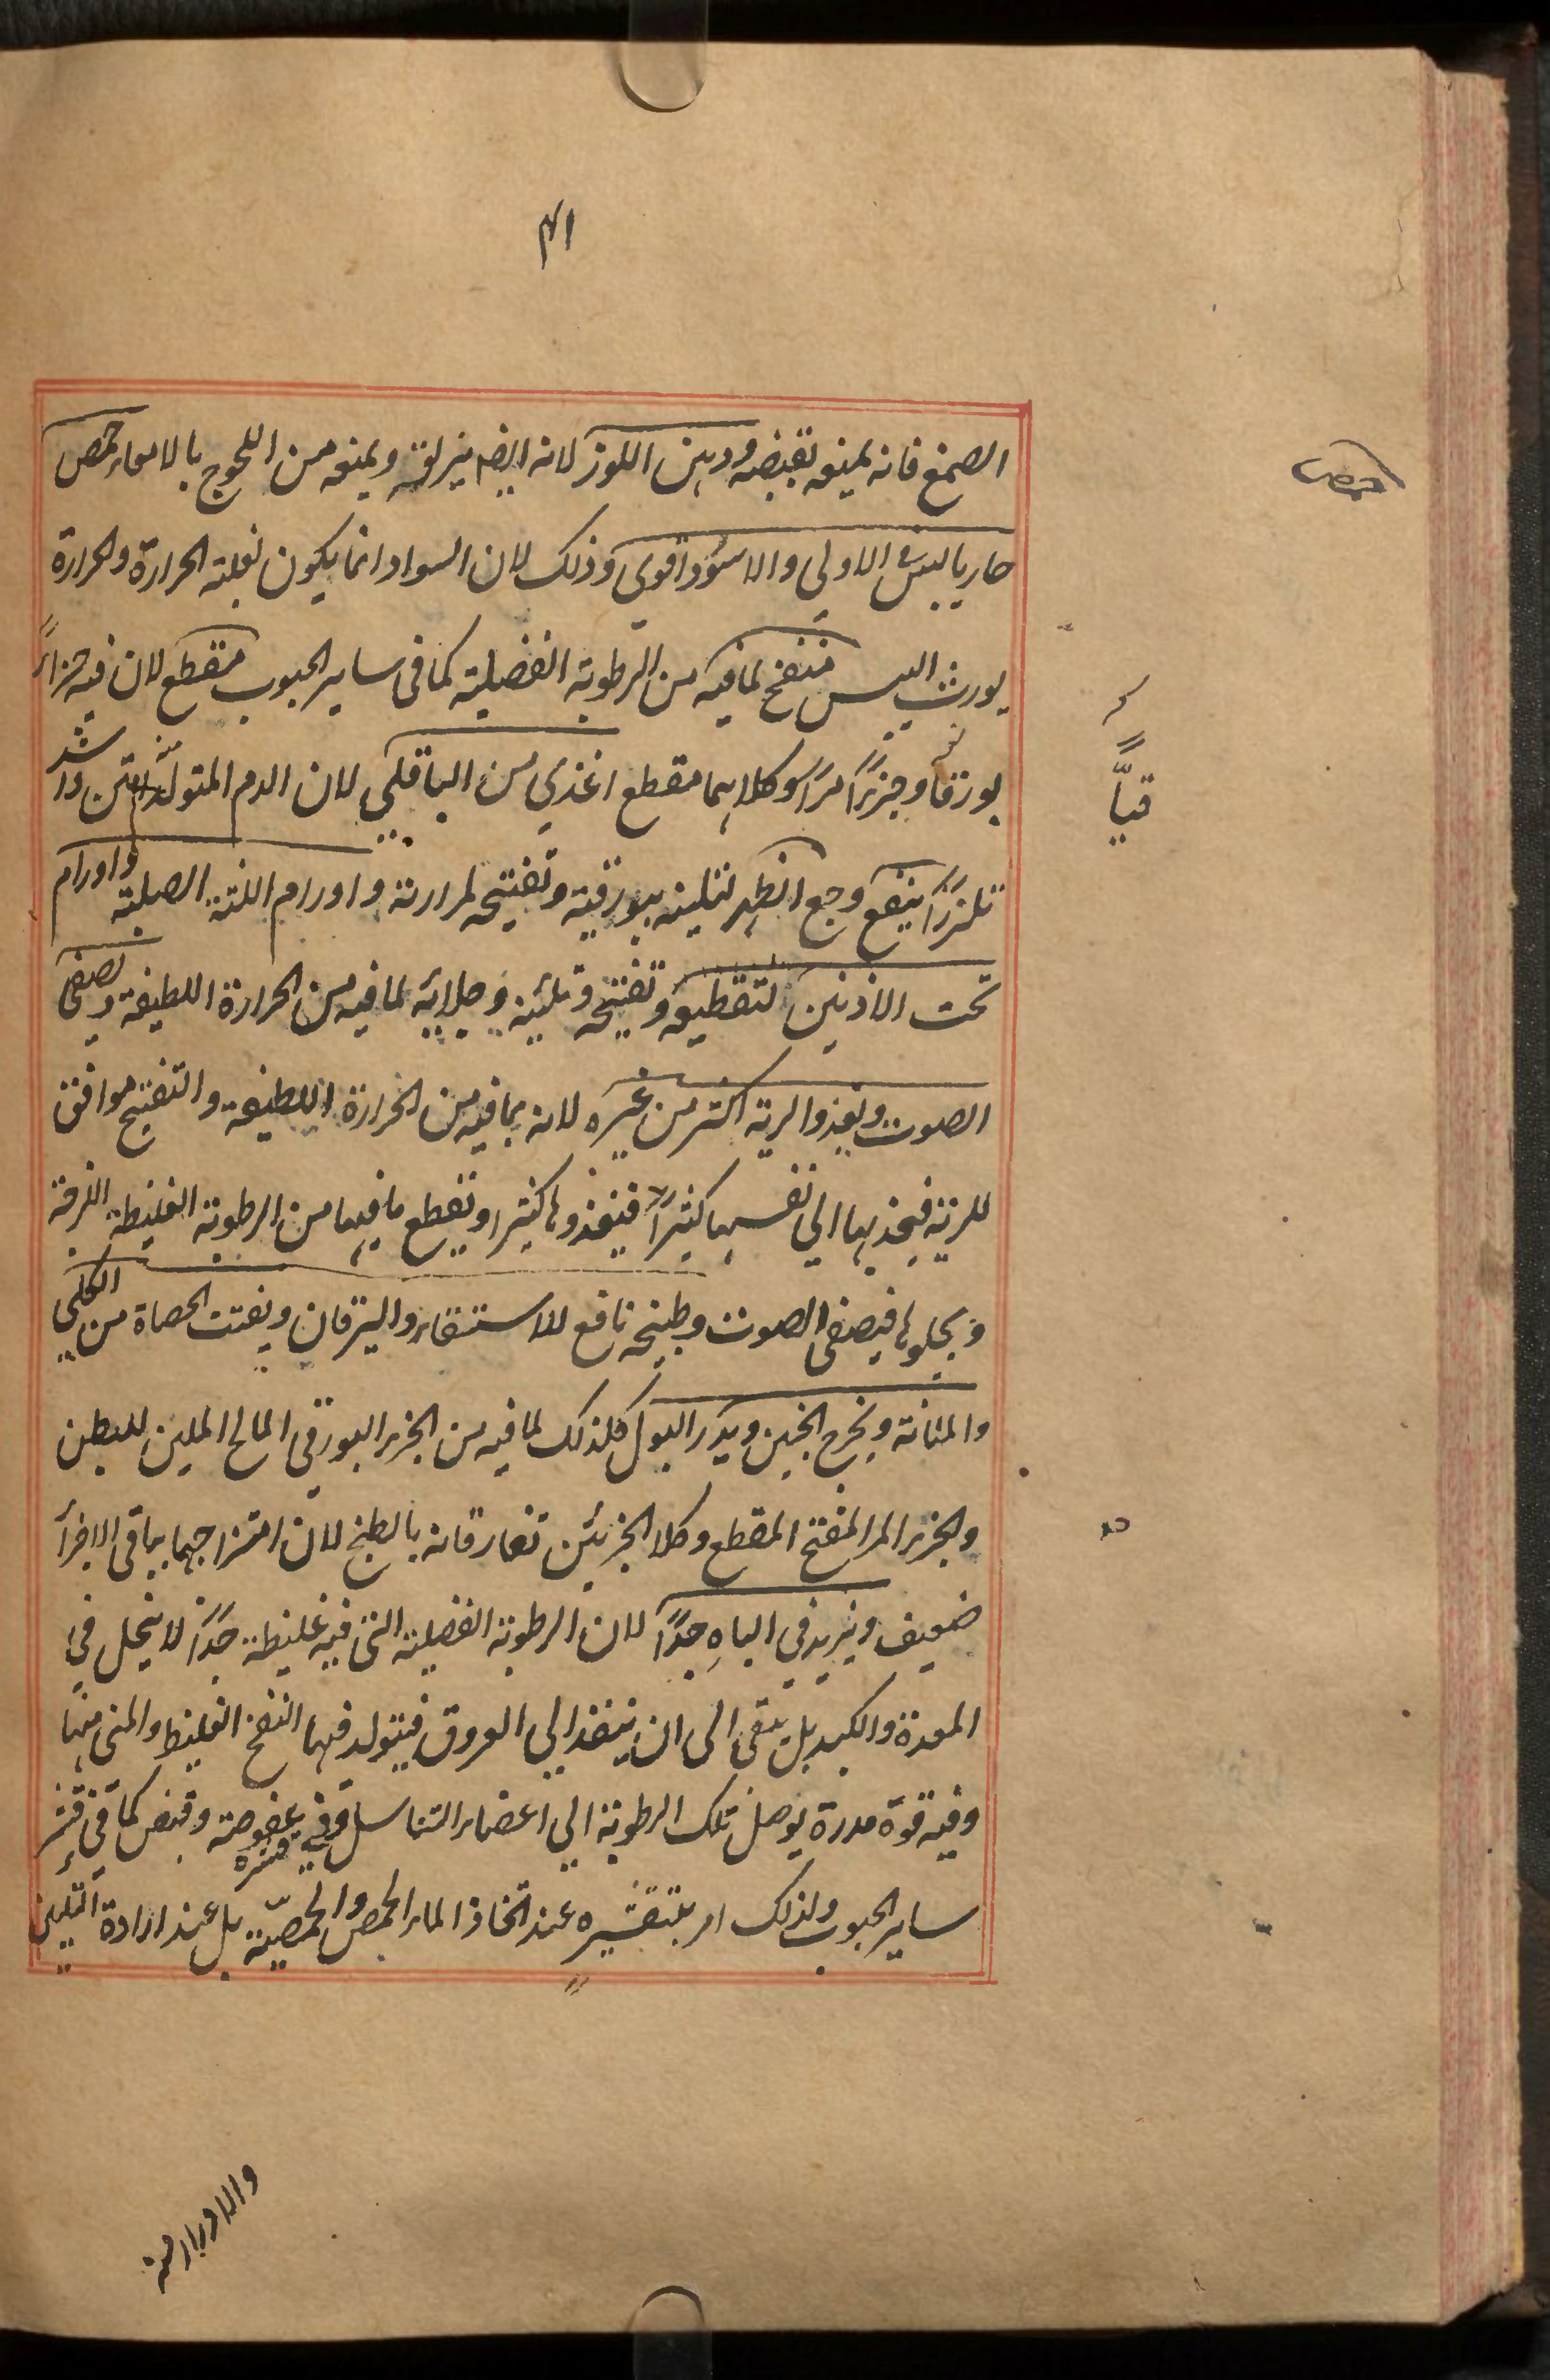 ۴۱
الصمغ فانه يمنعه بقبضه ودهن اللوز لانه ايضا يزلقه ويمنعه من اللحوج بالامعاء حمص
حمص
حار يابس فى الاولى والاسود اقوى وذلك لان السواد انما يكون لغلبة الحرارة والحرارة
يورث اليبس منفخ لما فيه من الرطوبة الفضلية كما فى ساير الحبوب مقطع لان فيه جزاءً
بورقيا وجزءًا مرًا وكلاهما مقطع اغذى من الباقلى لان الدم المتولد منه امتن واشد
قياً
تلززًا ينفع وجع الظهر لتليينه ببورقيته وتفتيحه لمرارته واورام اللثة الصلبة واورام
تحت الاذنين لتقطيعه وتفتيحه وتليينه وجلائه لما فيه من الحرارة اللطيفة ويصفى
الصوت ويغذو الرية اكثر من غيره لانه بما فيه من الحرارة اللطيفة والتفتيح موافق
للرية فيجذبها الى نفسها كثيرًا فيغذوها كثيرا ويقطع ما فيها من الرطوبة الغليظة اللزجة
ويجلوها فيصفى الصوت وطبيخه نافع للاستسقاء واليرقان ويفتت الحصاة من الكلى
والمثانة ويخرج الجنين ويدر البول كلذلك لما فيه من الجزء البورقى المالح الملين للبطن
والجزء المر المفتح المقطع وكلا الجزئين تفارقانه بالطبخ لان امتزاجهما بباقى الاجزأ
ضعيف ويزيد فى الباه جدًا لان الرطوبة الفضلية التى فيه غليظة جدًا لا ينحل فى
المعدة والكبد بل يبقى الى ان ينفذ الى العروق فيتولد فيها النفخ الغليظ والمنى منها
وفيه قوة مدرة يوصل تلك الرطوبة الى اعضاء التناسل وفى قشره عفوصة وقبض كما فى قشر
ساير الحبوب ولذلك امر بتقشيره عند اتخاذ الماء الحمص والحمصية بل عند ارادة التليين
والادرار منه